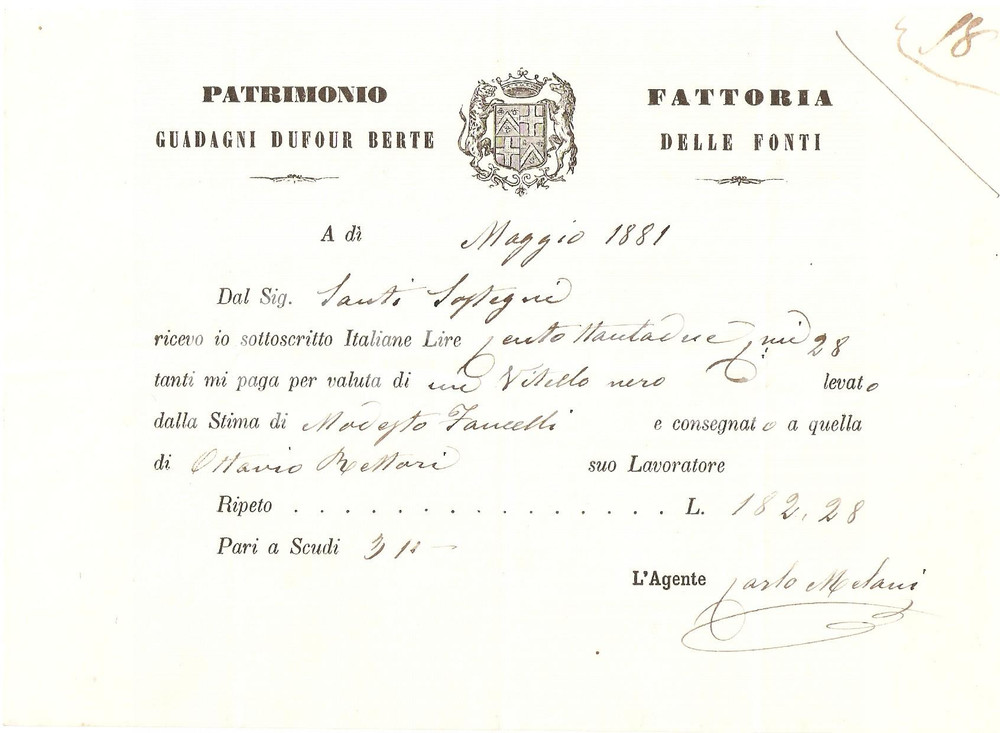 18
PATRIMONIO
GUADAGNI DUFOUR BERTE
FATTORIA
DELLE FONTI
A dì Maggio 1881
Dal Sig. Santi Sostegni
ricevo io sottoscritto Italiane Lire Centottantadue C.mi 28
tanti mi paga per valuta di un Vitello nero levato
dalla Stima di Modesto Fancelli e consegnato a quella
di Ottavio Rettori suo Lavoratore
Ripeto . . . . . . . . . . . . . . . . . L. 182.28
Pari a Scudi 31
L'Agente Carlo Melani